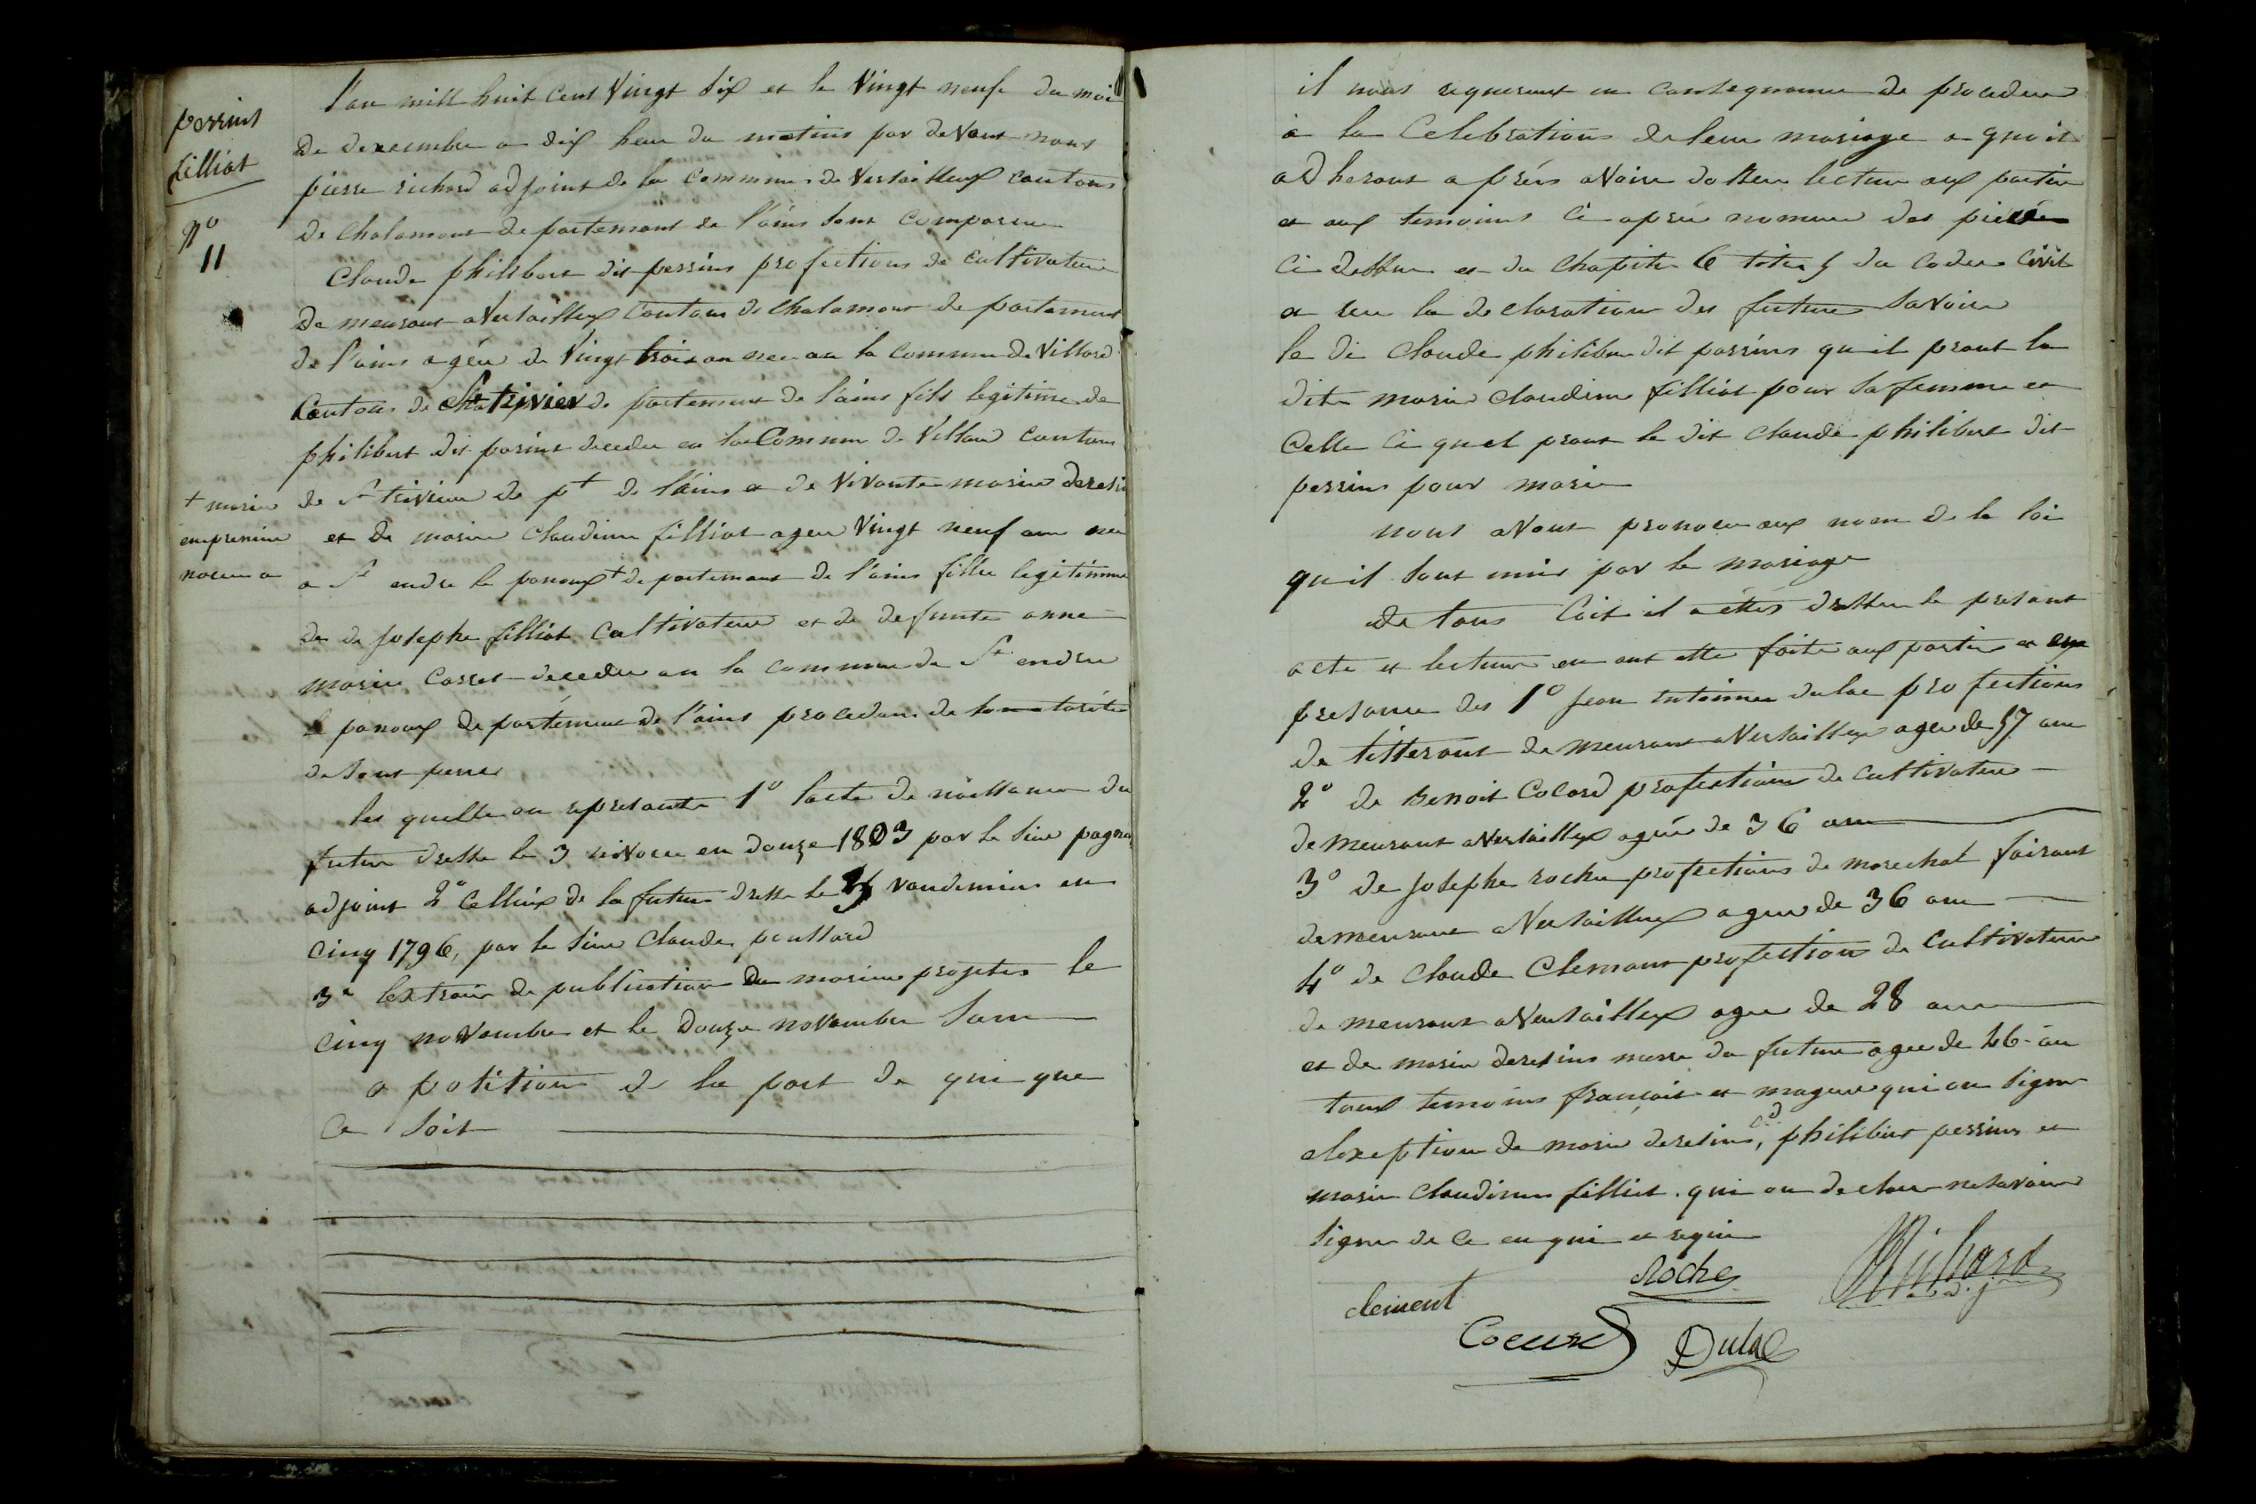 perrins
filliat
N°
11
l'an mill huit cent Vingt six et le Vingt neufe du moi
de decembre a dix heur du matins par devant nous
pierre richard adjoint de la commune de Versailleux cantons
de chalamont departemant de l'ains sont comparu
Claude philibert dit perrins profections de cultivateur
de meurant a Versailleux Cantons de chalamont de partement
de l'ains agée de Vingt trois an nee au la commune de Villard
Cantons de St trivier de partement de l'ains fils legitime de
philibert dit perins decedee en la Commune de Villard cantons
de st trivier de pt de l'ains et de Vivante marie deresin
et de marie claudine filliat agee Vingt neuf an nee
a St andre le panoux + departemant de l'ains fillee legitimme
+ marie
emprenion
noeu a
de de Josephe filliat Cultivateur et de defunte anne
marie Carret decedee au la commune de St andre
le panoux de partement de l'ains procedans de lautorité
de sont perre
les quelle on apresante 1° lacte de naissance du
futur dresse le 3 nivose en douze 1803 par le sieur pagna
adjoint 2° celluix de la future dresse le vandemier en
cinq 1796, par le sieur Claude poullard
3° lextrair de publication du mariee projeter le
cinq novembre et le douze novembre sans
a potition de la part de qui que
ce soit
il nous requerant en consequance de proceder
a la Celebrations de leur mariage a quoit
adherant aprés avoire dotten lecture aux partie
et aux temoins ci apreé nommee des pieces
ci dessu et du chapitre 6 titre 5 du coder Civil
a reu la declaration des future savoire
le di Claude philiber dit perrins qu il prant la
dite marie claudine filliat pour sa femme et
Celle ci quel prant le dit claude philibert dit
perrins pour marie
nous avont pronocee aux nom de la loi
qu il sont unis par le mariage
de tous Ceit il a étté dressee le presant
acte et lecture en ant ette faite aux partie et en
presance des 1° Jean antoinne dulac profections
de titterant de meurant a Versailleux agee de 57 an
2° de Benoit Cocard profections de cultivateur
de meurant a Versailleux agée de 36 an
3° de Josephe roche profections de marechal fairant
demeurant a Versailleux agee de 36 an
4° de claude Clemant profections de Cultivateur
de meurant a Versailleux agee de 28 an
et de marie deresins merre du future agee de 46 an
tous temoins français et mageur qui on signe
alexeption de marie deresins, cd philibert perrins et
marie claudinne filliat. qui on declare ne savoire
signe de ce enquie et requie
clement
Roche
Richard
adj.
Cocard
Dulac